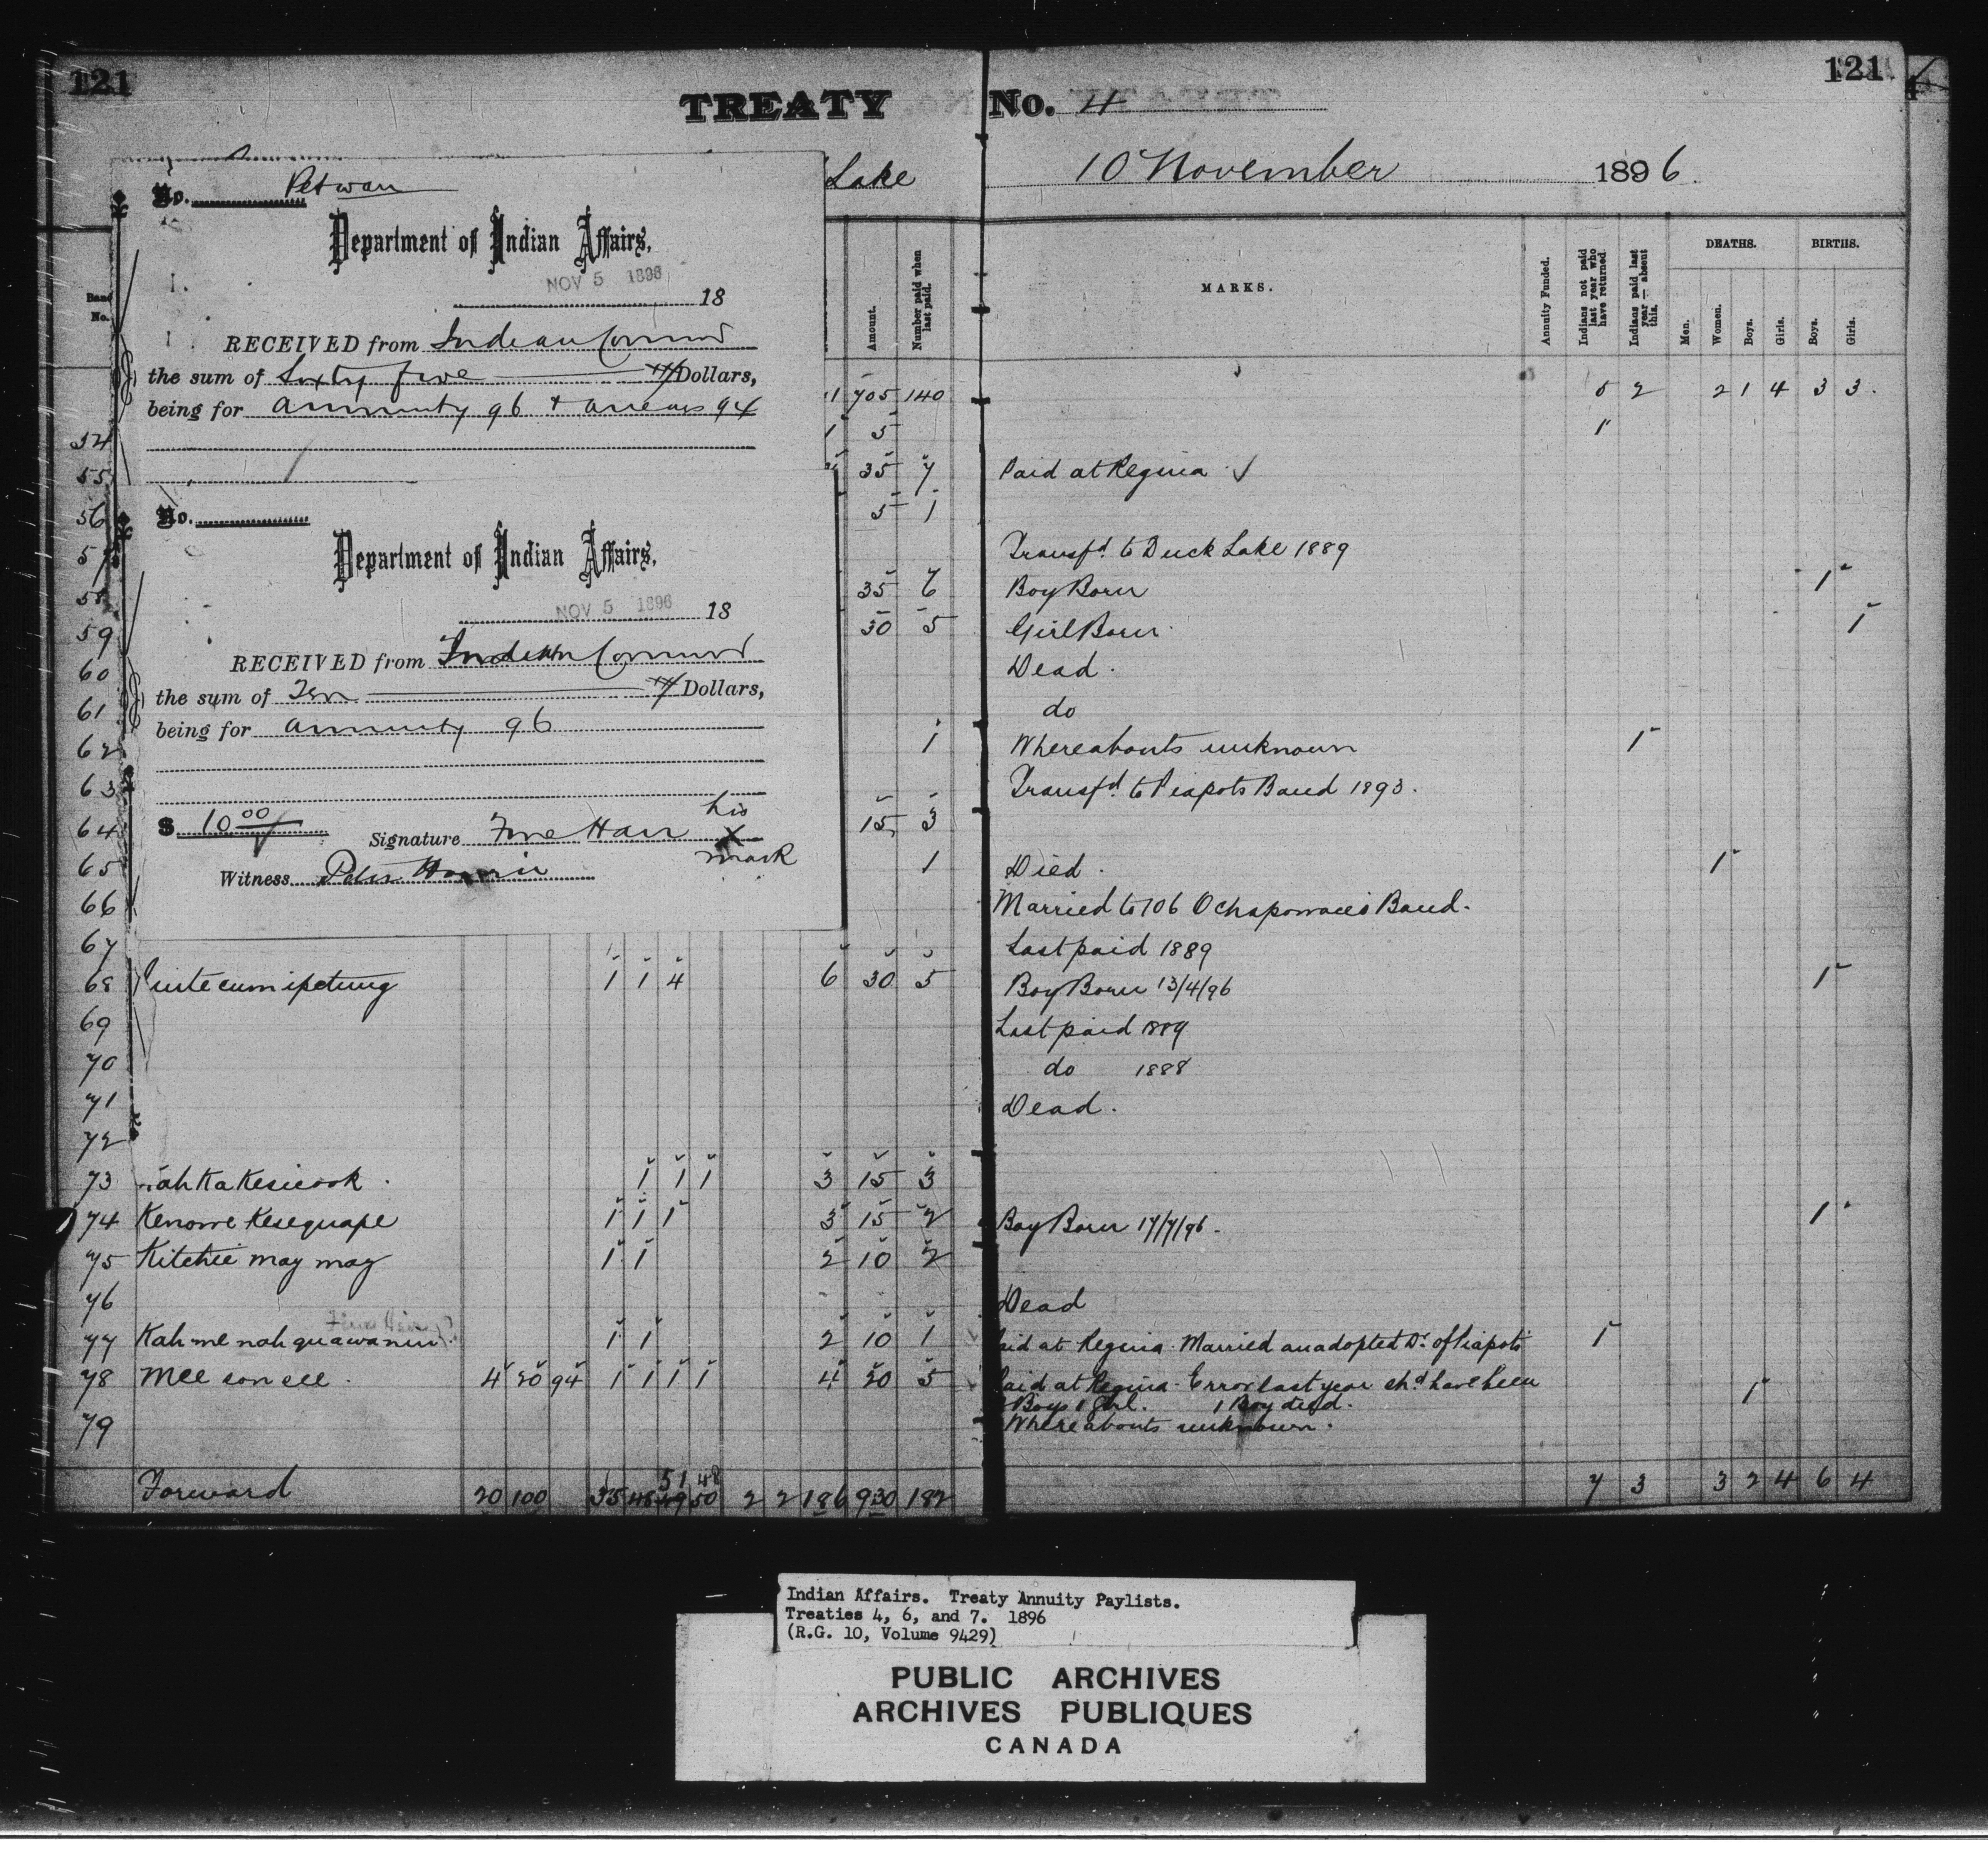 121
121
TREATY No. 4
Lake 10 November 1896
No. Petwan
Department of Indian Affairs,
NOV 5 1896 18
RECEIVED from Indian Commr
the sum of Sixty five Dollars,
being for annuity 96 + arrears 94
No.
Department of Indian Affairs,
NOV 5 1896 18
RECEIVED from Indian Commr
the sum of Ten Dollars,
being for annuity 96
$ 10 00 Signature Fine Hair his X mark
Witness Peter
Band No. Amount. Number paid when last paid. MARKS. Annuity Funded. Indians not paid last year who have returned Indians paid last year — absent this. DEATHS. Men. Women. Boys. Girls. BIRTHS. Boys. Girls.
1 705 140 5 2 2 1 4 3 3
54 1 5 1
55 35 7 Paid at Regina
56 5 1
57 Transfd. to Duck Lake 1889
58 35 6 Boy Born 1
59 30 5 Girl Born 1
60 Dead.
61 do
62 1 Whereabouts unknown 1
63 Transfd. to Piapots Band 1893.
64 15 3
65 1 Died. 1
66 Married to 106 Ochapowaces Band.
67 Last paid 1889
68 1 1 4 6 30 5 Boy Born 13/4/96 1
69 Last paid 1889
70 do 1888
71 Dead.
72
73 1 1 1 3 15 3
74 Kenowe Kesequape 1 1 1 3 15 2 Boy Born 17/7/96. 1
75 Kitchie may may 1 1 2 10 2
76 Dead
77 Kah me nah quawanin 1 1 2 10 1 aid at Regina. Married an adopted Dr. of Piapots 1
78 Mee son ell. 4 20 94 1 1 1 1 4 20 5 Paid at Regina. Error last year shd have been 1
Boys 1 Girl. 1 Boy died.
79 Whereabouts unknown.
51 48
Forward 20 100 35 48 49 50 2 2 186 930 182 7 3 3 2 4 6 4
Indian Affairs. Treaty Annuity Paylists.
Treaties 4, 6, and 7. 1896
(R.G. 10, Volume 9429)
PUBLIC ARCHIVES
ARCHIVES PUBLIQUES
CANADA